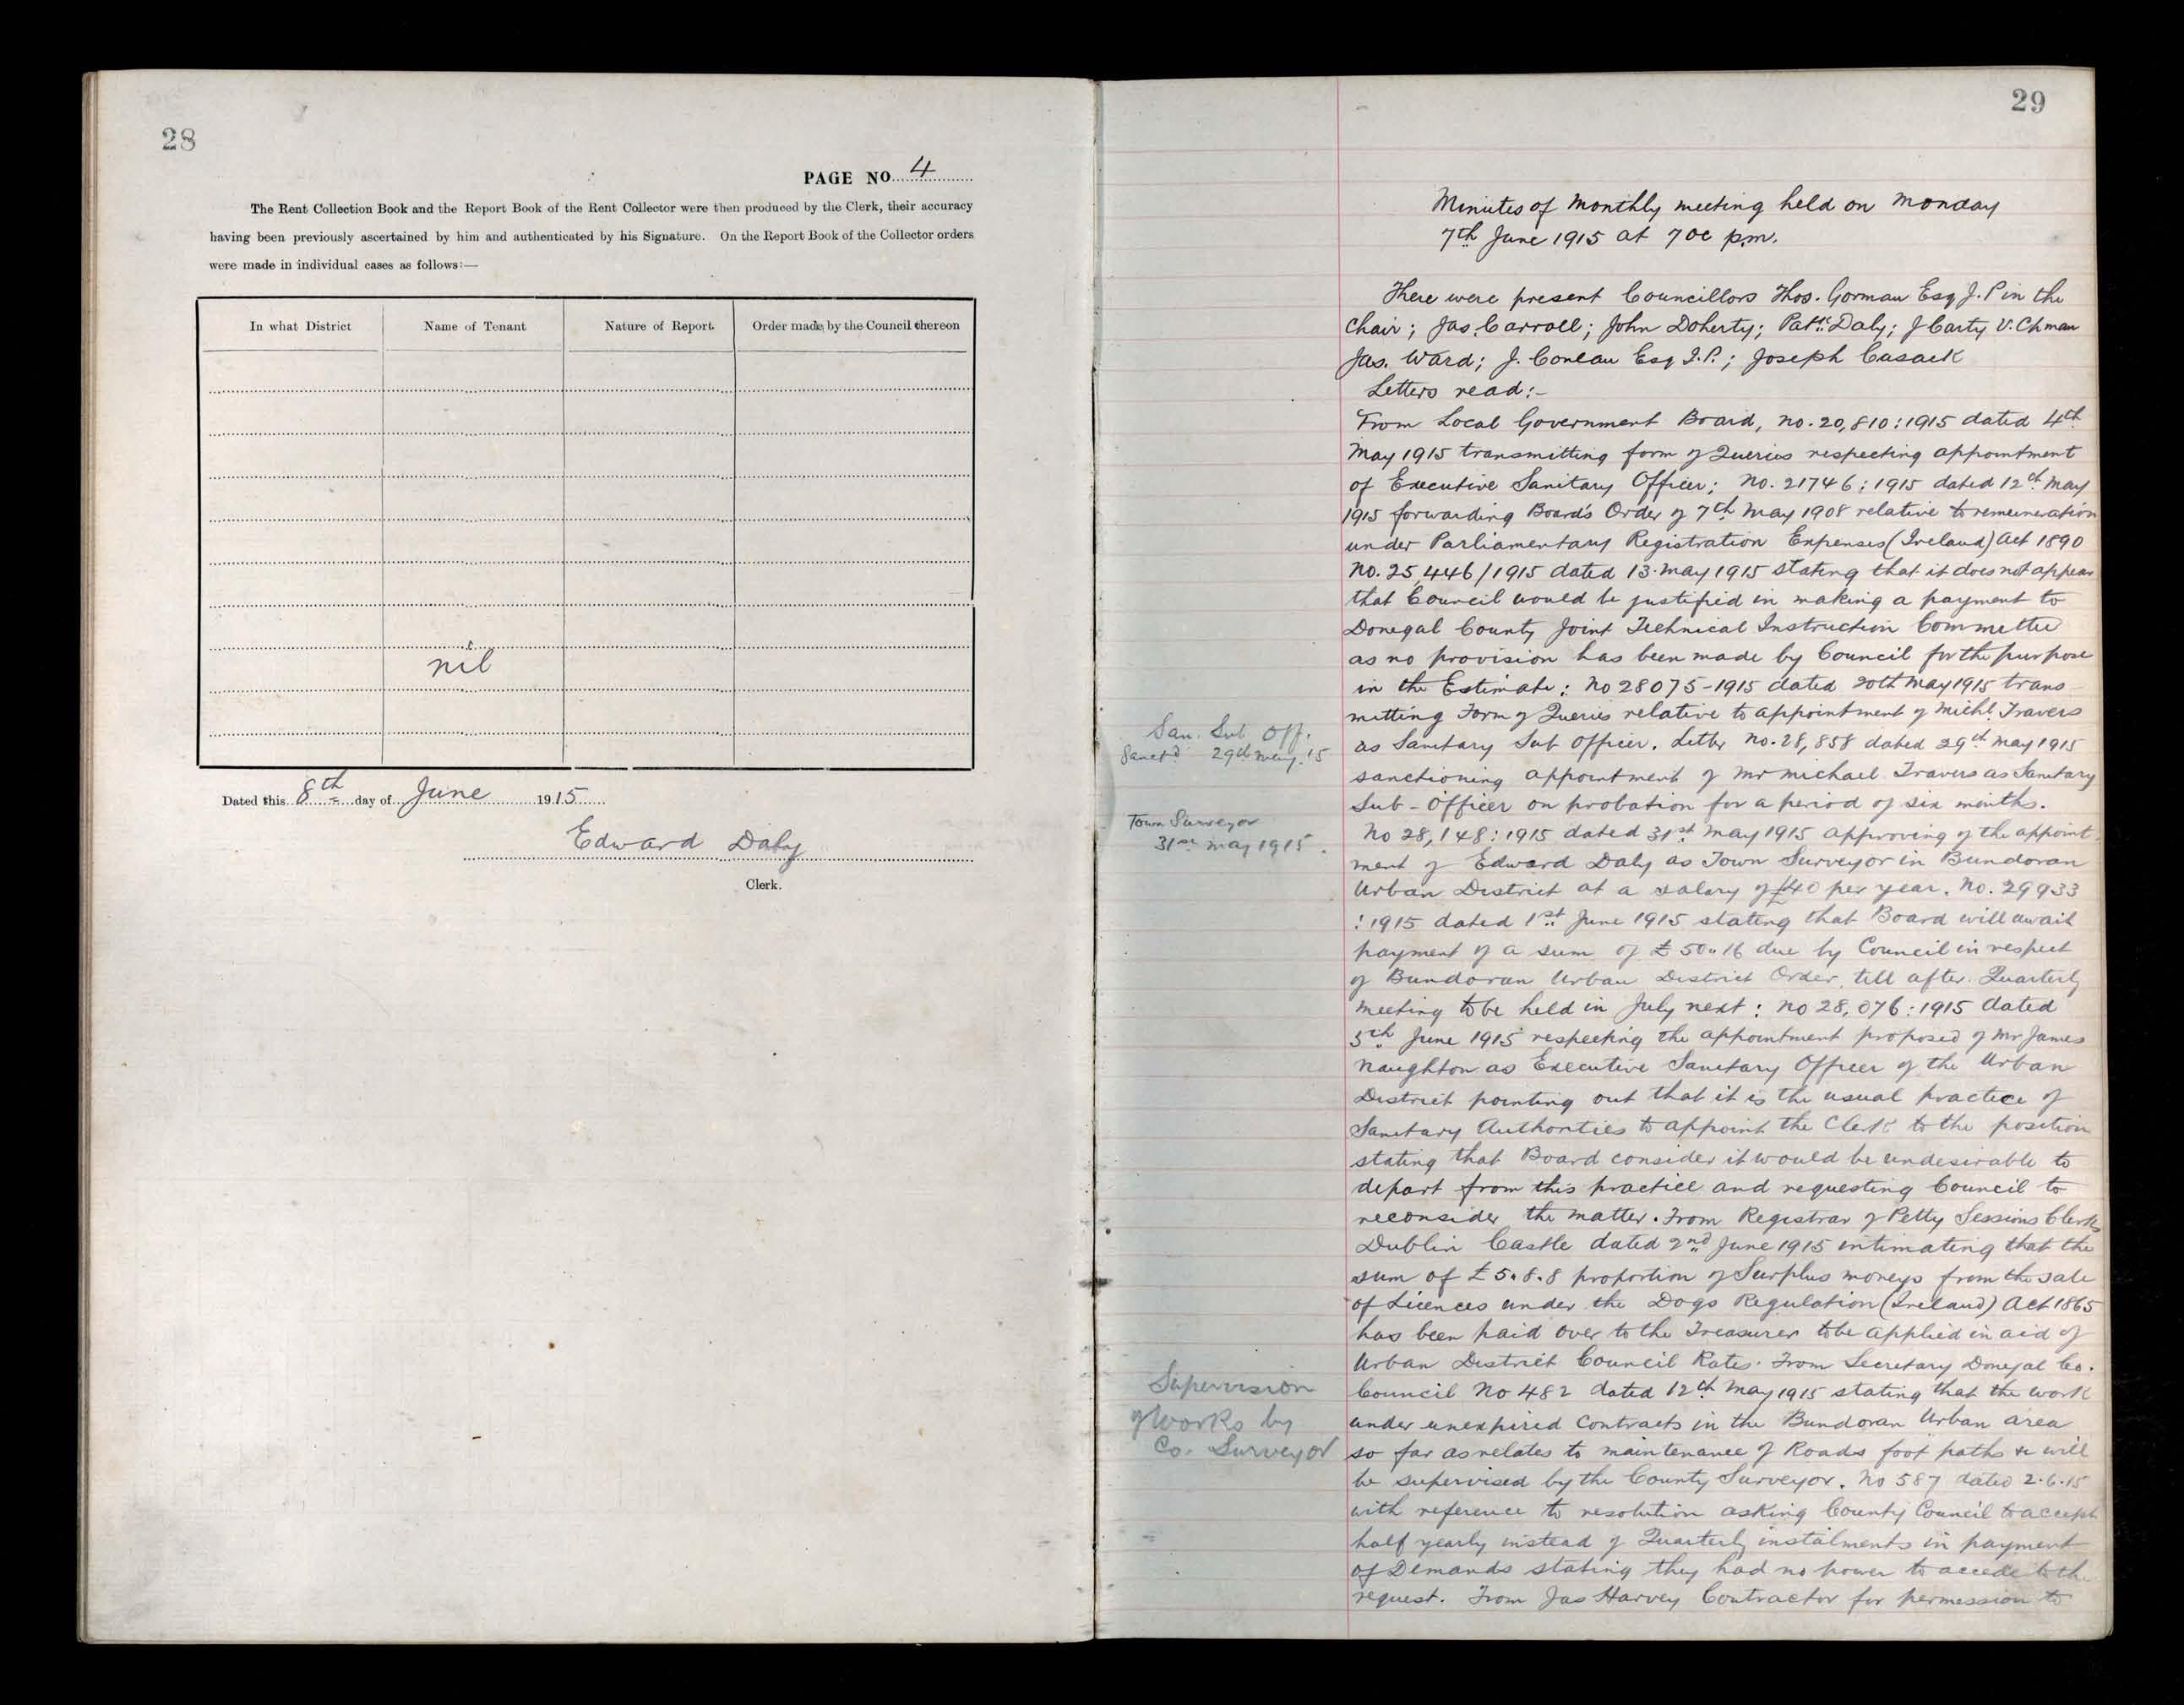 28
PAGE NO. 4
The Rent Collection Book and the Report Book of the Rent Collector were then produced by the Clerk, their accuracy
having been previously ascertained by him and authenticated by his Signature. On the Report Book of the Collector orders
were made in individual cases as follows:—
In what District Name of Tenant Nature of Report. Order made by the Council thereon
nil
Dated this 8th day of June 1915
Edward Daly
Clerk.
29
Minutes of Monthly meeting held on Monday
7th June 1915 at 7 oc p.m.
There were present Councillors Thos. Gorman Esq J.P in the
Chair; Jas. Carroll; John Doherty; Patk Daly; J Carty V. Chman
Jas. Ward; J. Conlan Esq J.P.; Joseph Cusack
Letters read:-
From Local Government Board, no. 20,810:1915 dated 4th
May 1915 transmitting form of Queries respecting appointment
of Executive Sanitary Officer; No. 21746:1915 dated 12th May
1915 forwarding Board's Order of 7th May 1908 relative to remuneration
under Parliamentary Registration Expenses (Ireland) Act 1890
No. 25,446/1915 dated 13. May 1915 stating that it does not appear
that Council would be justified in making a payment to
Donegal County Joint Technical Instruction Committee
as no provision has been made by Council for the purpose
in the Estimate: No 28075-1915 dated 20th May 1915 trans
mitting Form of Queries relative to appointment of Michl. Travers
San. Sub Off.
Sanctd 29th May. 15
as Sanitary Sub Officer. Letter No. 28,858 dated 29th May 1915
sanctioning appointment of Mr Michael Travers as Sanitary
Sub-Officer on probation for a period of six months.
Town Surveyor
31st May 1915.
No 28,148:1915 dated 31st May 1915 approving of the appoint-
ment of Edward Daly as Town Surveyor in Bundoran
Urban District at a salary of £40 per year. No. 29933
:1915 dated 1st June 1915 stating that Board will await
payment of a sum of £50"16 due by Council in respect
of Bundoran Urban District Order, till after Quarterly
meeting to be held in July next: No 28,076:1915 dated
5th June 1915 respecting the appointment proposed of Mr James
Naughton as Executive Sanitary Officer of the Urban
District pointing out that it is the usual practice of
Sanitary Authorities to appoint the Clerk to the position
stating that Board consider it would be undesirable to
depart from this practice and requesting Council to
reconsider the matter. From Registrar of Petty Sessions Clerks
Dublin Castle dated 2nd June 1915 intimating that the
sum of £5.8.8 proportion of Surplus moneys from the sale
of Licences under the Dogs Regulation (Ireland) Act 1865
has been paid over to the Treasurer to be applied in aid of
Urban District Council Rates. From Secretary Donegal Co.
Supervision
of Works by
Co. Surveyor
Council No 482 dated 12th May 1915 stating that the work
under unexpired contracts in the Bundoran Urban area
so far as relates to maintenance of Roads foot paths &c will
be supervised by the County Surveyor. No 587 dated 2.6.15
with reference to resolution asking County Council to accept
half yearly instead of Quarterly instalments in payment
of Demands stating they had no power to accede to the
request. From Jas Harvey Contractor for permission to